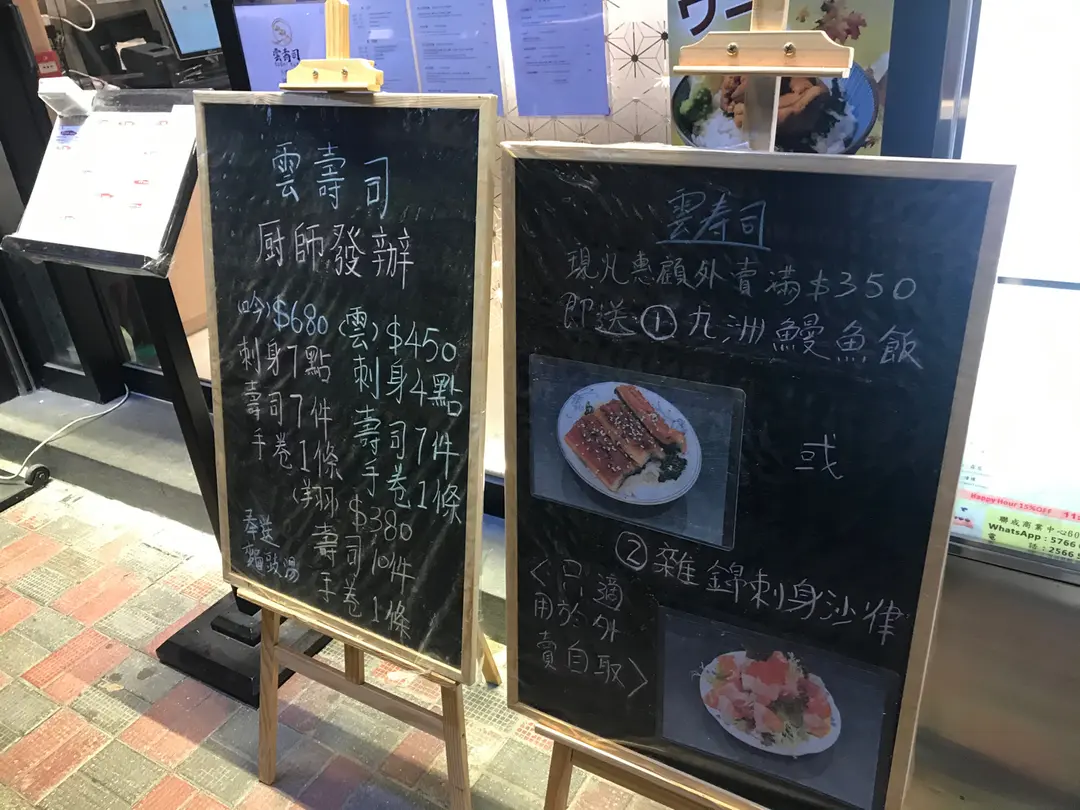 雲壽司
雲壽司
厨師發辦
(吟)$680
刺身7點
壽司7件
手卷1條
(雲)$450
刺身4點
壽司7件
手卷1條
(翔)$380
壽司10件
手卷1條
奉送
麵豉湯
雲寿司
現凡惠顧外賣滿$350
即送①九洲鰻魚飯
或
②雜錦刺身沙律
<只適
用於外
賣自取>
Happy Hour 15%OFF
聯成商業中心
WhatsApp : 5766
電 話 : 2566